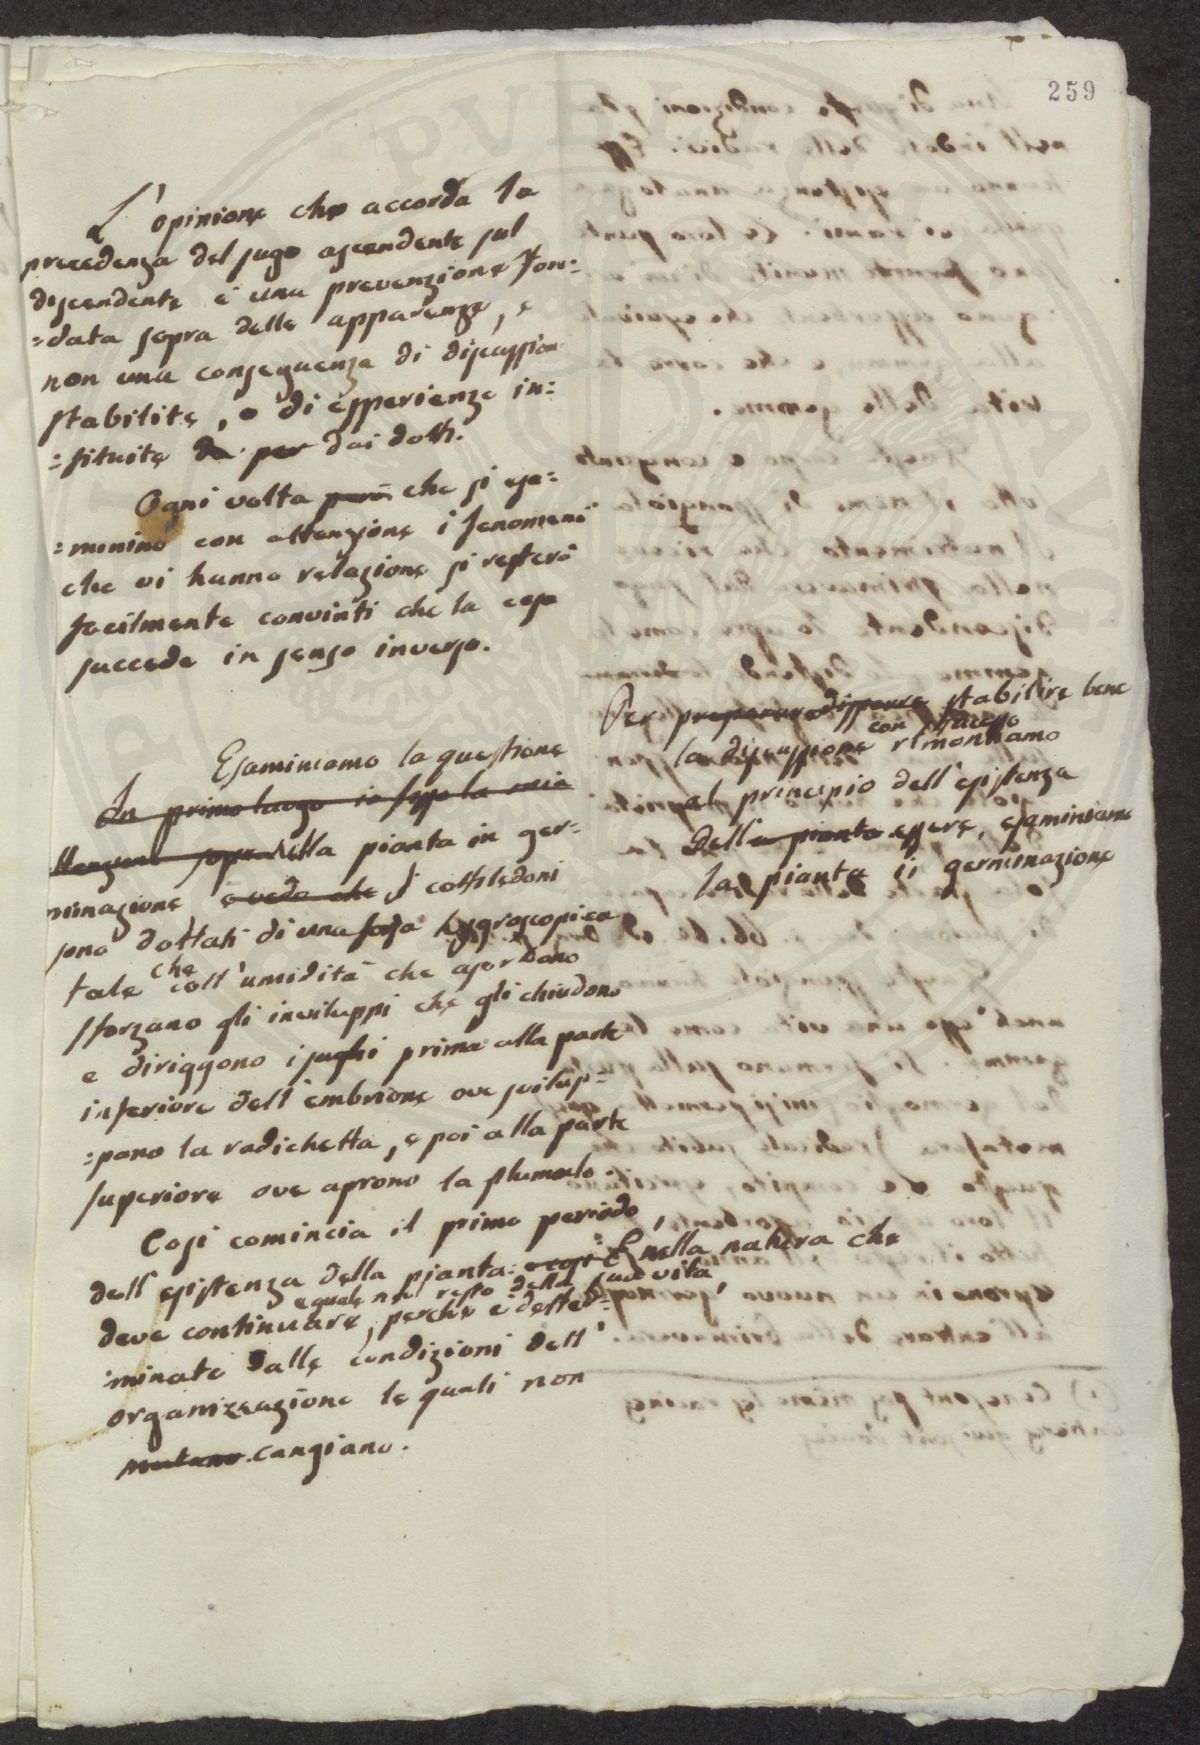 259
L'opinione che accorda la
precedenza del sugo ascendente sul
discendente è una prevenzione fon=
=data sopra delle apparenze, e
non una conseguenza di discussion
stabilite, o di esperienze in=
=stituite da per dai dotti.
Ogni volta però che si esa=
=minino con attenzione i fenomeni
che vi hanno relazione si resterà
facilmente convinti che la cosa
succede in senso inverso.
Esaminiamo la questione
In primo luogo io fisso la mia
sopra nella pianta in ger=
minazione e vedo che I cottiledoni
sono dottati di una forza hygroscopica
tale che coll'umidità che assorbano
sforzano gli inviluppi che gli chiudono
e diriggono i sughi prima alla parte
inferiore dell'embrione ove svilup=
=pano la radichetta, e poi alla parte
superiore ove aprono la plumula.
Così comincia il primo periodo
dell'esistenza della pianta: così È nella natura che
eguale nel resto della sua vita,
deve continuare, perchè è deter=
minato dalle condizioni dell'
organizzazione le quali non
mutano cangiano.
Per preparare disporre stabilire bene
con successo
la discussione rimontiamo
al principio dell'esistenza
della pianta essere, esaminiamo
la pianta in germinazione